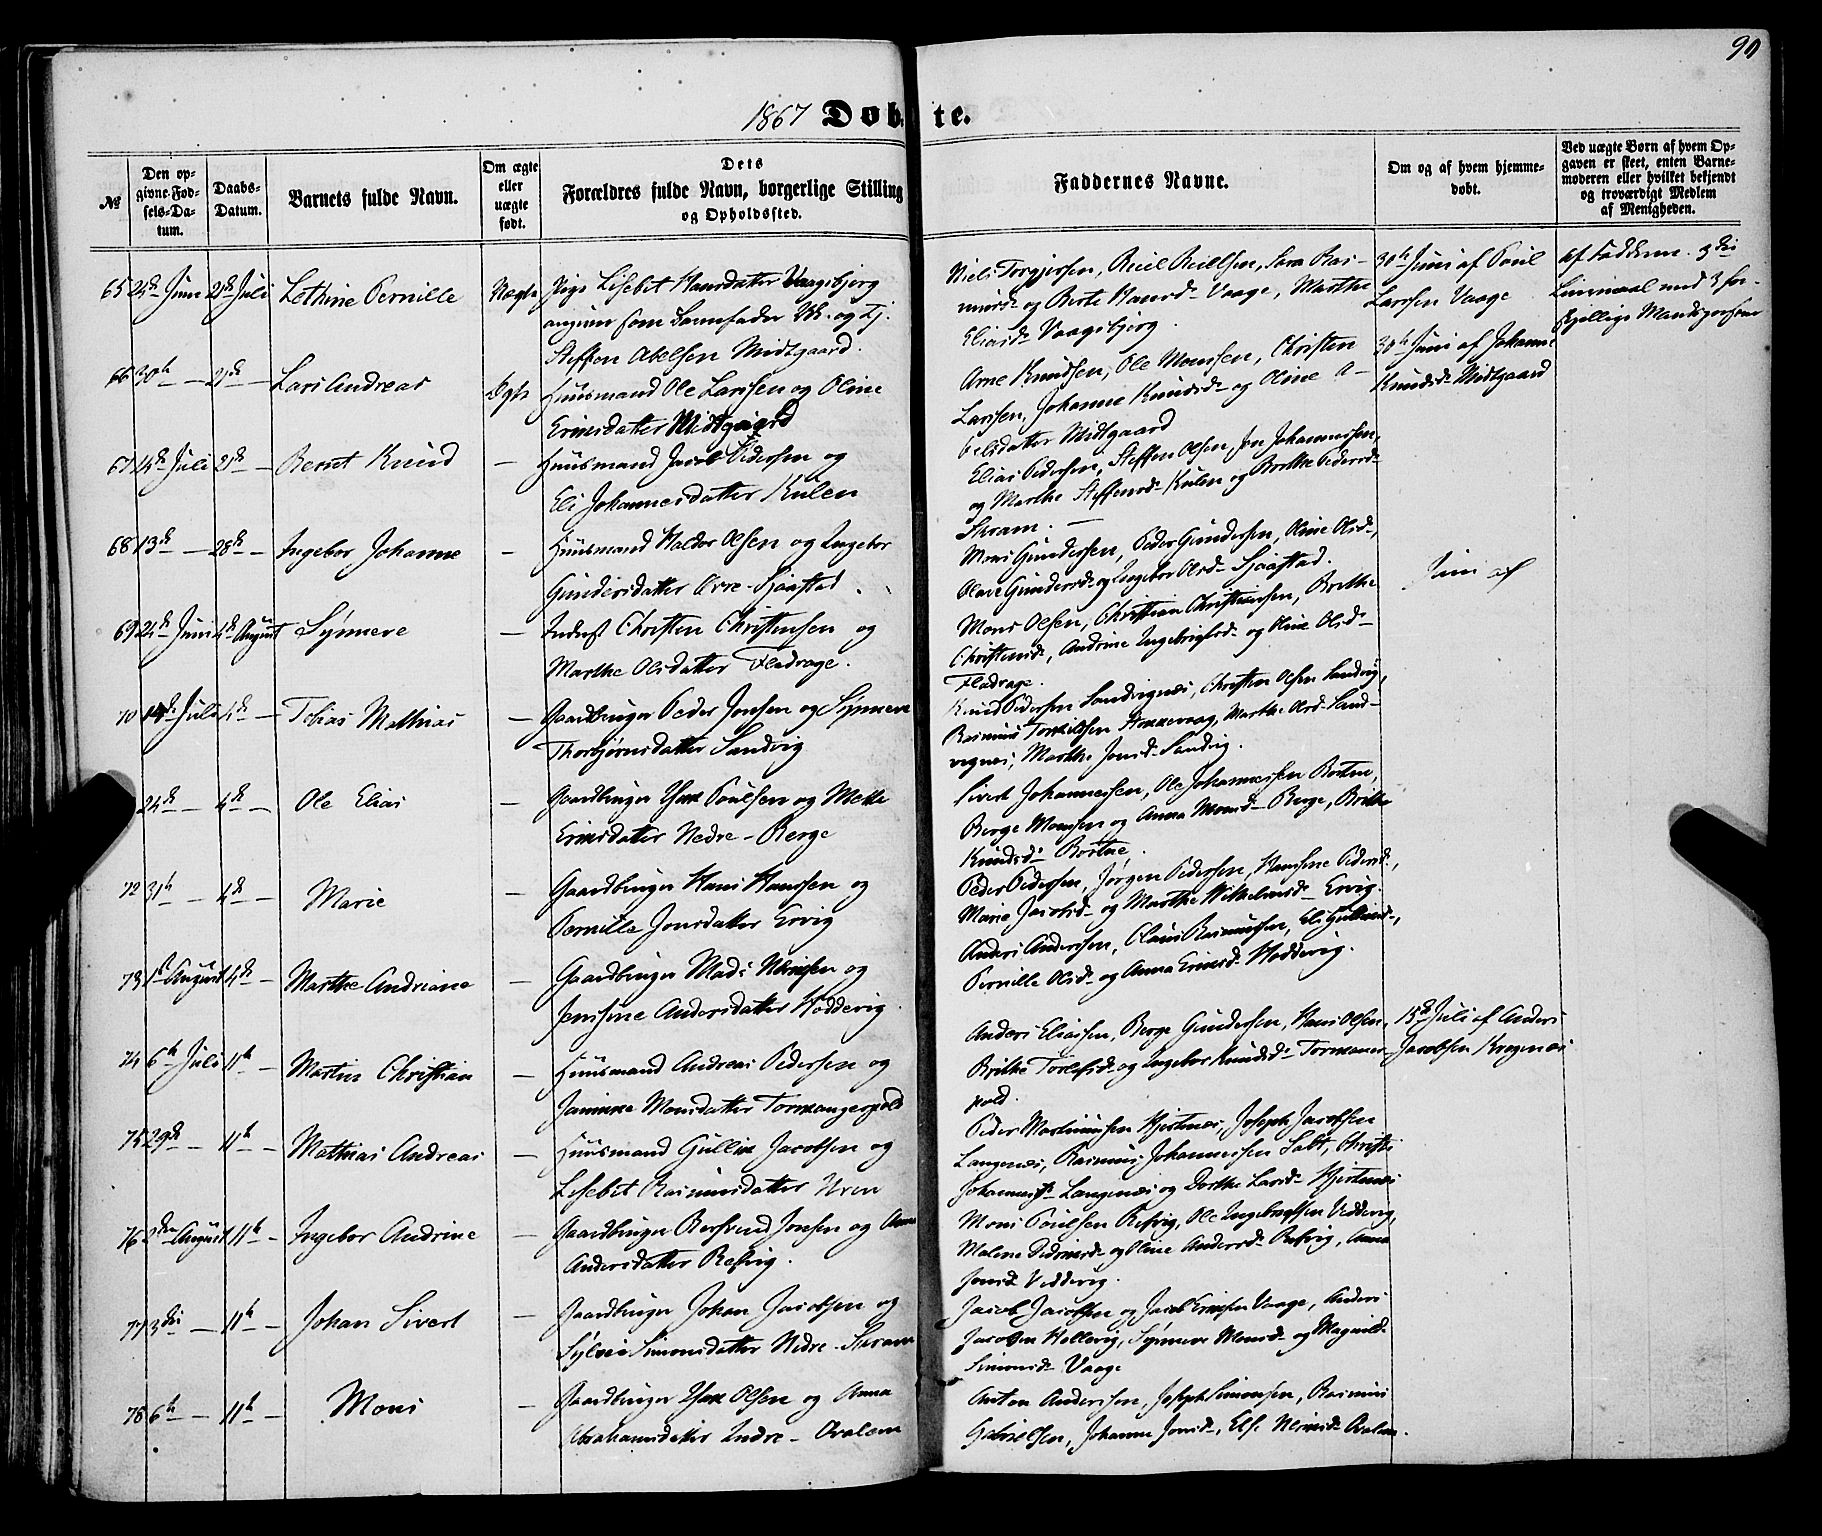 90
1867 Døbte.
№
Den op-
givne Fød-
sels-Da-
tum.
Daabs-
Datum.
Barnets fulde Navn.
Om ægte
eller
uægte
født.
Dets
Forældres fulde Navn, borgerlige Stilling
og Opholdssted.
Faddernes Navne.
Om og af hvem hjemme-
døbt.
Ved uægte Børn af hvem Op-
gaven er skeet, enten Barne-
moderen eller hvilket bekjendt
og troværdigt Medlem
af Menigheden.
65 24de Juni 21de Juli Lethine Pernille Uægte Pige Lisebet Hansdatter Vaagsbjerg
angiver som Barnefader Uk. og Tj.
Steffen Abelsen Midtgaard.
Niels Torgjersen, Rasmus- og Berte Hansd- Vaage, Marthe
Eliasd- Vaagsbjerg.
30te Juni af Poul
Larssen Vaage
af Fadderne. 3die
Leiermaal med 3 for-
skjellige Mandspersoner
66 30te — 21de — Lars Andreas Ægte Huusmand Ole Larssen og Oline
Ericsdatter Midtgaard
Arne Knudsen, Ole Monsen, Christen
Larssen, Johanne Knudsd- og Oline A-
belsdatter Midtgaard
30te Juni af Johanne
Knudsd- Midtgaard
67 14de Juli 21de — Bernt Knud — Huusmand Jacob Pedersen og
Eli Johannesdatter Kulen
Elias Pedersen, Steffen Olsen, Jon Johannessen,
og Marthe Steffensd- Kulen og Brithe Pedersd-
Skram. —
68 13de — 28de — Ingebor Johanne — Huusmand Haldor Olsen og Ingebor
Gundersdatter Øvre-Sjaastad.
Mons Gundersen, Peder Gundersen, Oline Olsd-,
Olave Gundersd- og Ingebor Olsd- Sjaastad.
Juni af
69 24de Juni 4de August Synneve — Inderst Christen Christensen og
Marthe Olsdatter Fladrage.
Mons Olsen, Christian Christensen, Brithe
Christensd-, Andrine Ingebrigtsd- og Oline Olsd-
Fladrage.
70 14de Juli 4de — Tobias Mathias — Gaardbruger Peder Jonsen og Synneve
Thorbjørnsdatter Sandvig
Knud Pedersen Sandvignæs, Christen Olsen Sandvig,
Rasmus Torkildsen Stokkevaag, Marthe Olsd- Sand-
vignæs, Marthe Jonsd- Sandvig.
24de — 4de — Ole Elias — Gaardbruger Poulsen og Mette
Ericsdatter Nedre-Berge
Sivert Johannessen, Ole Johannessen Borthen,
Berge Monsen og Anna Monsd- Berge, Brithe
Knudsd- Borthne.
72 31te — 4de — Marie — Gaardbruger Hans Hanssen og
Pernille Jonsdatter Ervig
Peder Pedersen, Jørgen Pedersen, Hansine Pedersd-,
Marie Jacobsd- og Marthe Wilhelmsd- Ervig.
73 1ste August 4de — Marthe Andriane — Gaardbruger Mads Nilssen og
Jensine Andersdatter Hoddevig.
Anders Anderssen, Claus Rasmussen, Eli Gulliksd-,
Pernille Olsd- og Anna Ericsd- Hoddevig.
74 6te Juli 11te — Martin Christian — Huusmand Andreas Pedersen og
Jannikke Monsdatter Tormangerpold
Anders Eliassen, Berge Gundersen, Hans Olsen,
Brithe Torlefsd- og Ingebor Knudsd- Tormanger-
pold.
15de Juli af Anders
Jacobsen Krogenæs
75 29de — 11te — Mathias Andreas — Huusmand Gullik Jacobsen og
Lisebet Rasmusdatter Uren
Peder Martinusen Hjertnæs, Joseph Jacobsen
Langenæs, Rasmus Johannessen Salt, Christi
Johannesd- Langenæs og Dorthe Larsd- Hjertnæs
76 2den August 11te — Ingebor Andrine — Gaardbruger Bersvend Jonsen og Anne
Andersdatter Refvig.
Mons Poulsen Refvig, Ole Ingebrigtsen Veddevig,
Malene Didriksd- og Oline Andersd- Refvig, Anna
Jonsd- Veddevig.
77 3die — 11te — Johan Sivert — Gaardbruger Johan Jacobsen og
Sylvie Simonsdatter Nedre-Skram
Jacob Jacobsen og Jacob Ericsen Vaage, Anders
Jacobsen Hellevig, Synneve Monsd- og Magnild
Simonsd- Vaage
78 6te — 11te — Mons — Gaardbruger Olsen og Anna
Abrahamsdatter Indre-Oralem
Anton Anderssen, Joseph Simonsen, Rasmus
Gabrielsen, Johanne Jonsd-, Else Oralem.